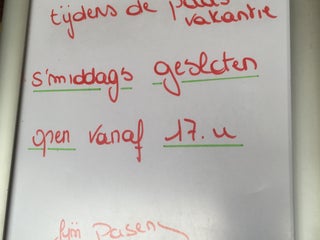 tijdens de paas
vakantie
s'middags gesloten
open vanaf 17.u
fijn Pasen